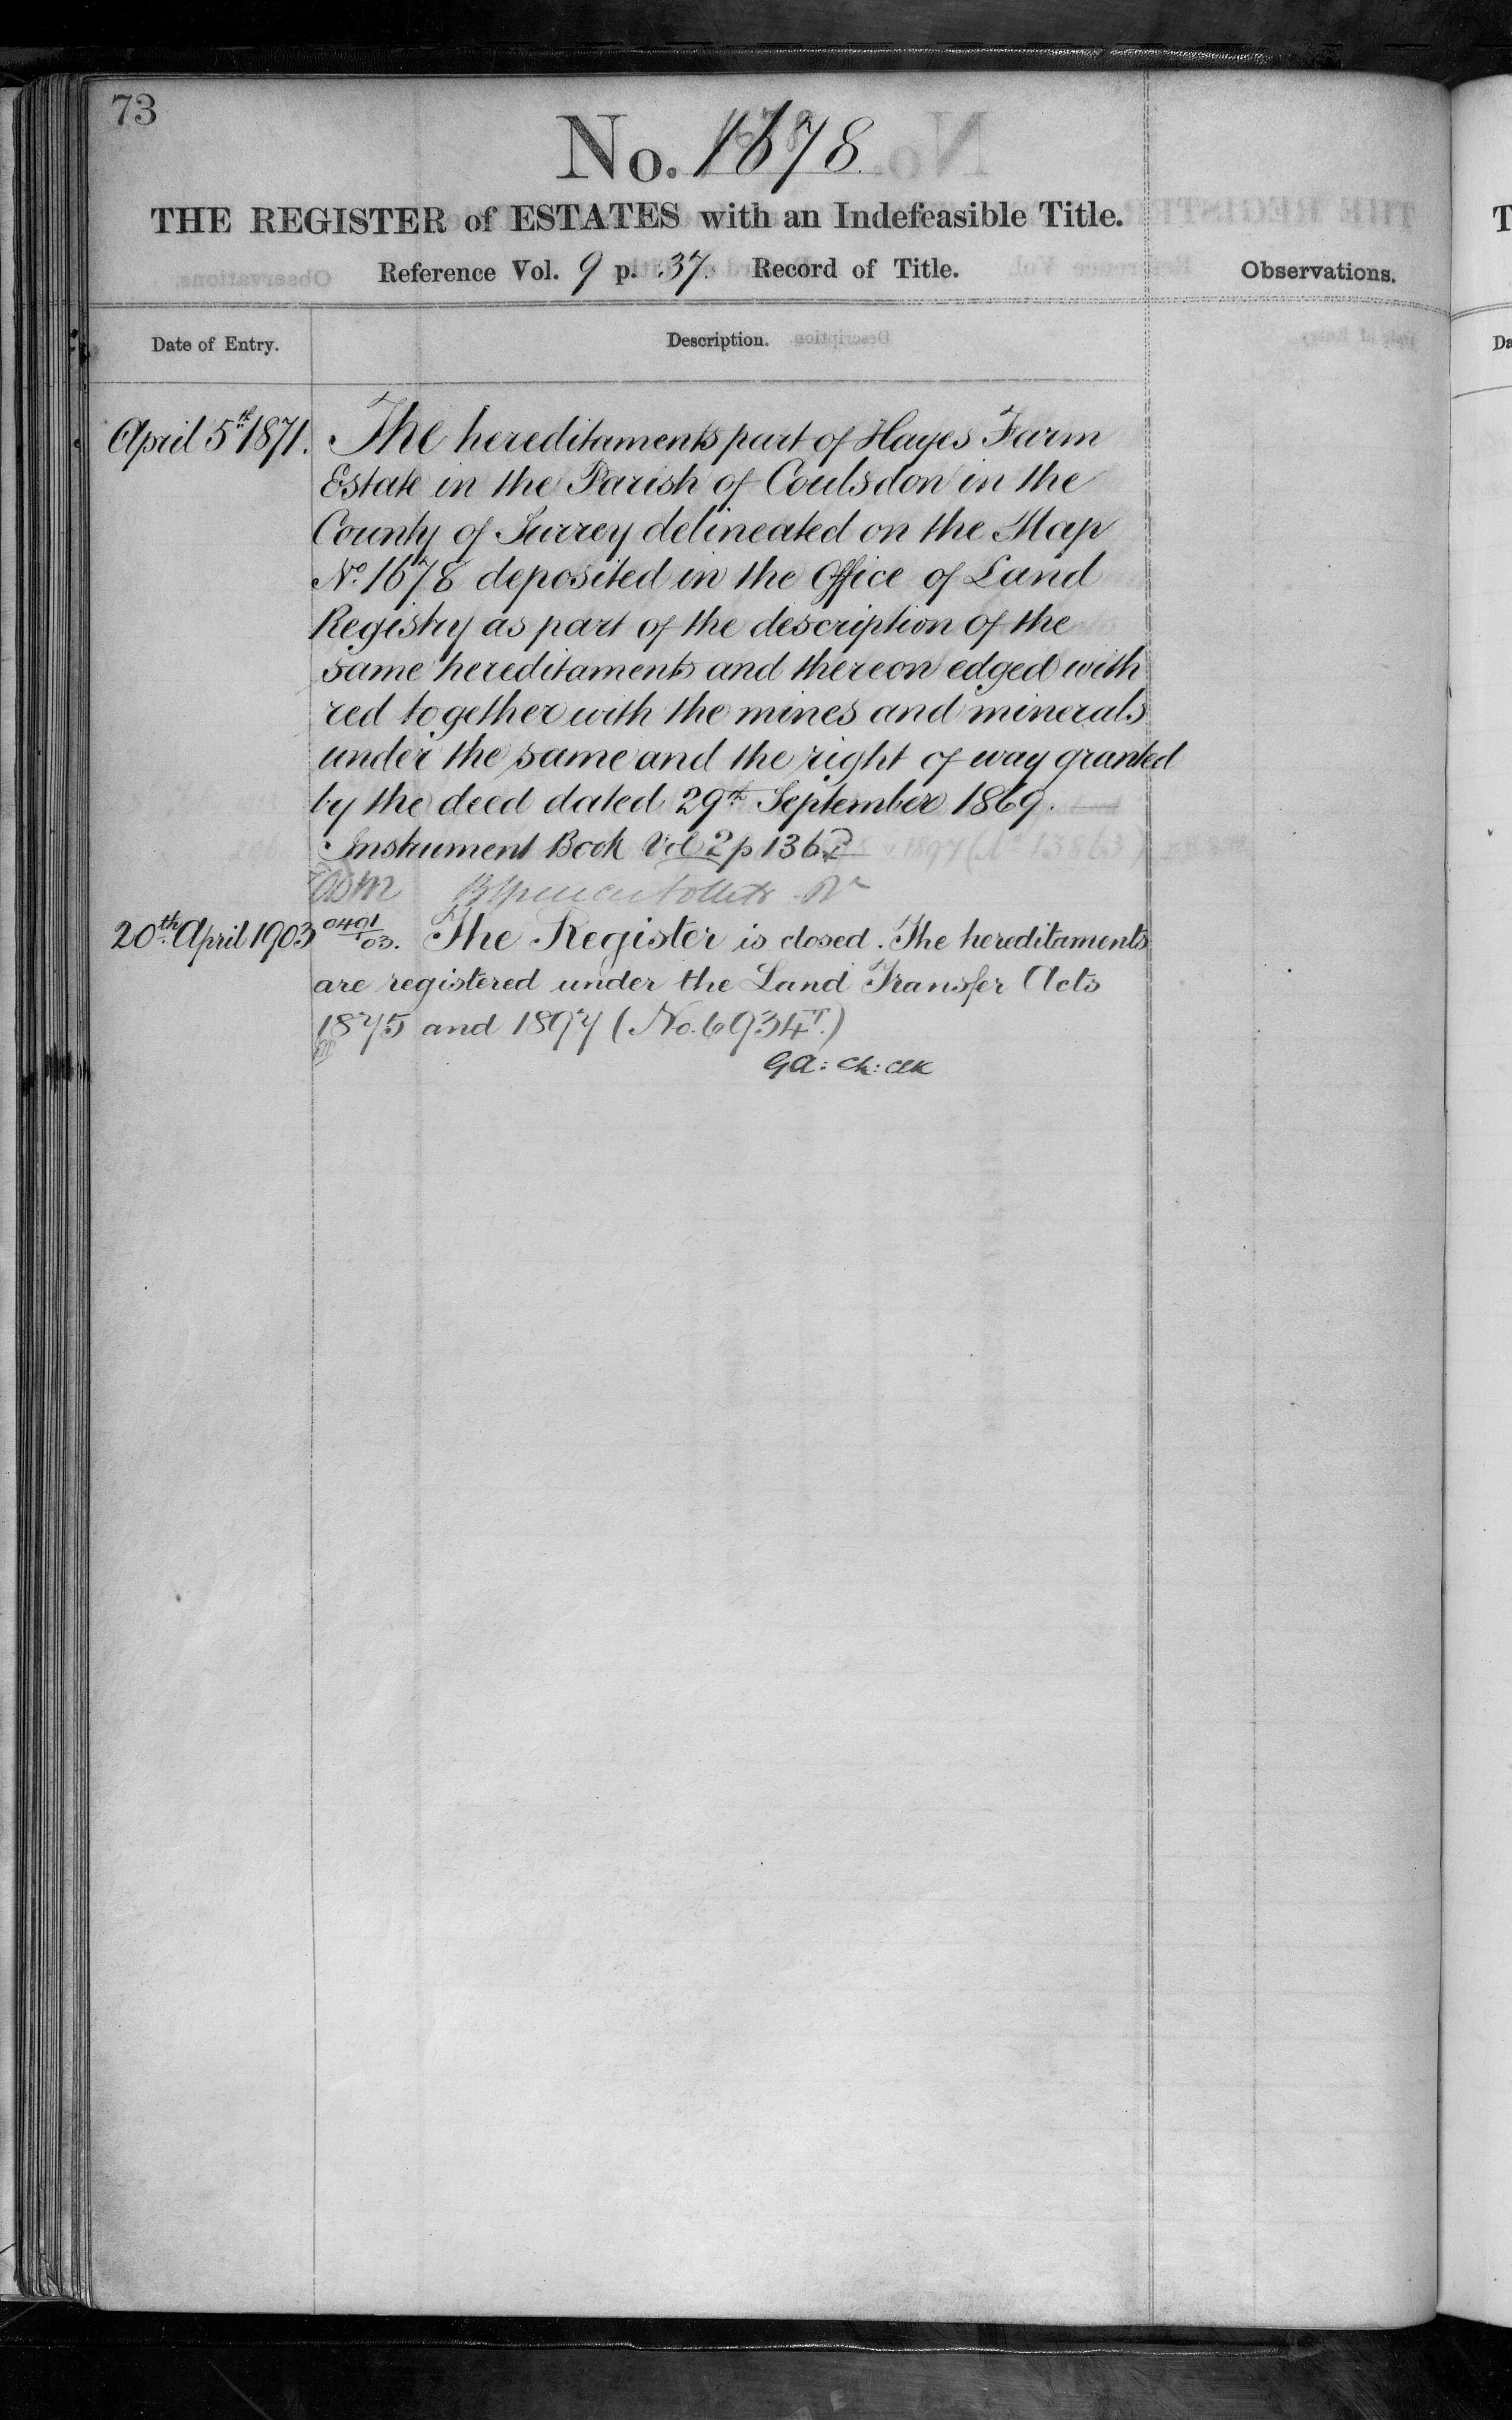 73
No. 1678.
THE REGISTER of ESTATES with an Indefeasible Title.
Reference Vol. 9 p. 37. Record of Title.
Observations.
Date of Entry.
Description.
April 5th 1871. The hereditaments part of Hayes Farm
Estate in the Parish of Coulsdon in the
County of Surrey delineated on the Map
No. 1678 deposited in the Office of Land
Registry as part of the description of the
same hereditaments and thereon edged with
red together with the mines and minerals
under the same and the right of way granted
by the deed dated 29th September 1869.
Instrument Book Vol 2 p 136
20th April 1903 0401/03. The Register is closed. The hereditaments
are registered under the Land Transfer Acts
1875 and 1897 (No. 6934T.)
GA: Ch: Clk